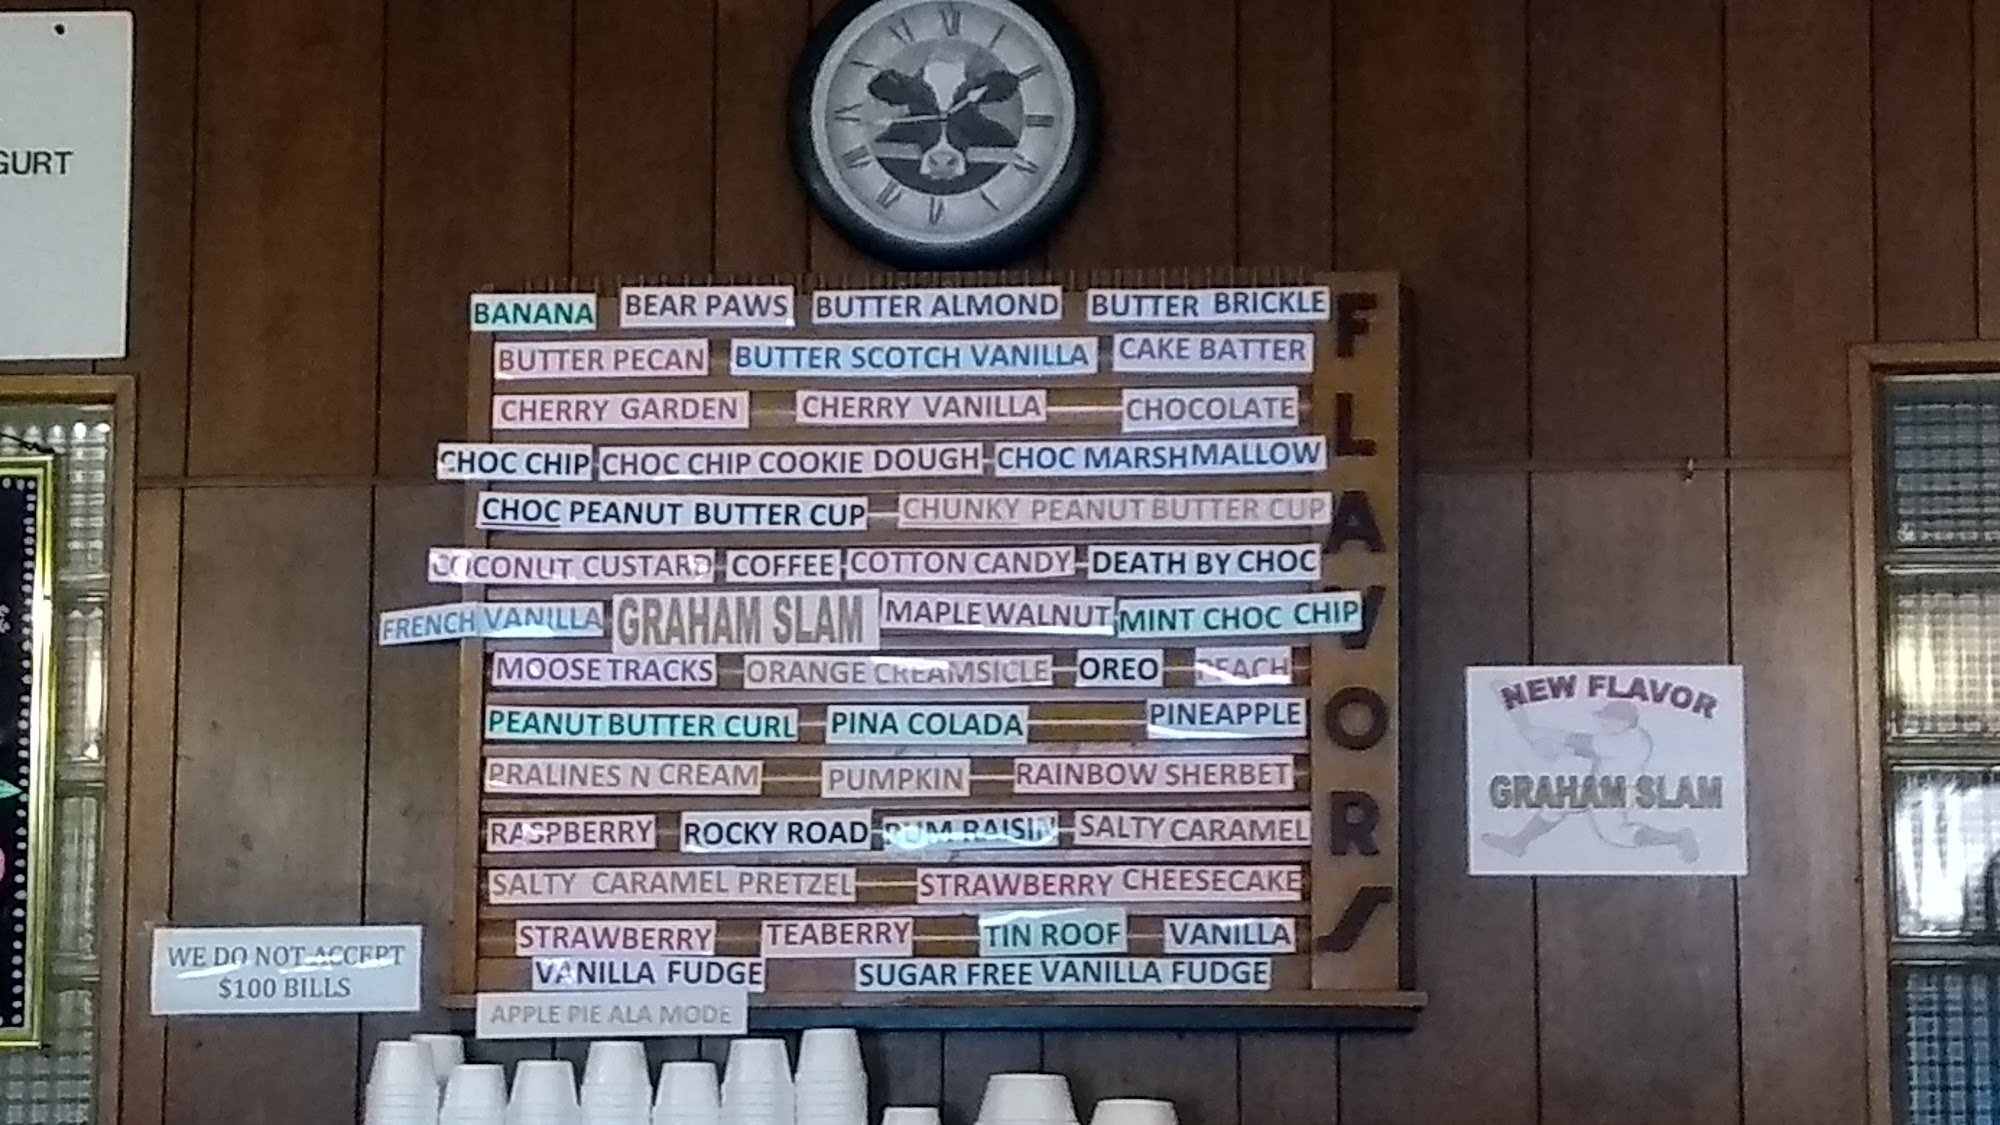 GURT
BANANA BEAR PAWS BUTTER ALMOND BUTTER BRICKLE
BUTTER PECAN BUTTER SCOTCH VANILLA CAKE BATTER
CHERRY GARDEN CHERRY VANILLA CHOCOLATE
CHOC CHIP CHOC CHIP COOKIE DOUGH CHOC MARSHMALLOW
CHOC PEANUT BUTTER CUP CHUNKY PEANUT BUTTER CUP
COCONUT CUSTARD COFFEE COTTON CANDY DEATH BY CHOC
FRENCH VANILLA GRAHAM SLAM MAPLE WALNUT MINT CHOC CHIP
MOOSE TRACKS ORANGE CREAMSICLE OREO PEACH
PEANUT BUTTER CURL PINA COLADA PINEAPPLE
PRALINES N CREAM PUMPKIN RAINBOW SHERBET
RASPBERRY ROCKY ROAD RUM RAISIN SALTY CARAMEL
SALTY CARAMEL PRETZEL STRAWBERRY CHEESECAKE
STRAWBERRY TEABERRY TIN ROOF VANILLA
VANILLA FUDGE SUGAR FREE VANILLA FUDGE
APPLE PIE ALA MODE
FLAVORS
NEW FLAVOR
GRAHAM SLAM
WE DO NOT ACCEPT
$100 BILLS